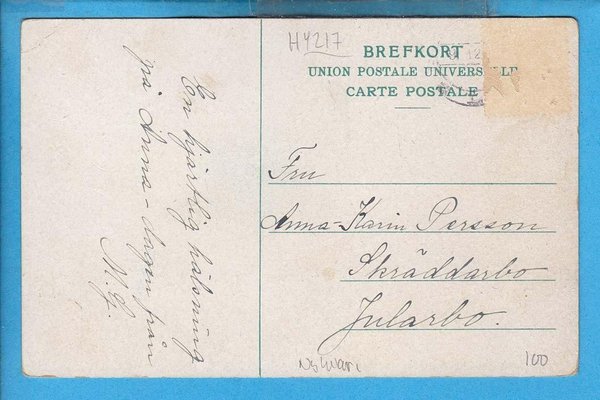 H4217
BREFKORT
UNION POSTALE UNIVERSELLE
CARTE POSTALE
En hjärtlig hälsning
på Anna-dagen från
M. G.
Fru
Anna-Karin Persson
Skräddarbo
Jularbo.
100